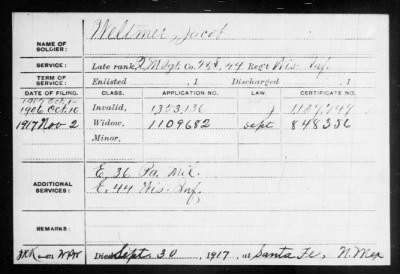 Weltmer, Jacob
NAME OF SOLDIER:
SERVICE: Late rank, Sgt. Co. 44 Reg't Wis. Inf.
TERM OF SERVICE: Enlisted , 1 Discharged , 1
DATE OF FILING. CLASS. APPLICATION NO. LAW. CERTIFICATE NO.
1906 Oct. 10 Invalid, 1353,136
1917 Nov 2 Widow, 1109682 Sept 848356
Minor,
ADDITIONAL SERVICES:
E. 36 Pa. Mil.
E. 44 Wis. Inf.
REMARKS:
Died Sept. 30 , 1917, at Santa Fe, N. Mex